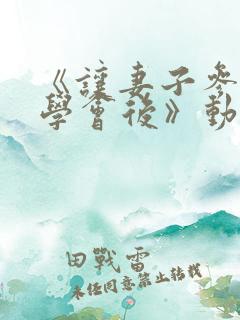 《讓妻子參
學會後》動
田戰雷
未任同意禁止转载